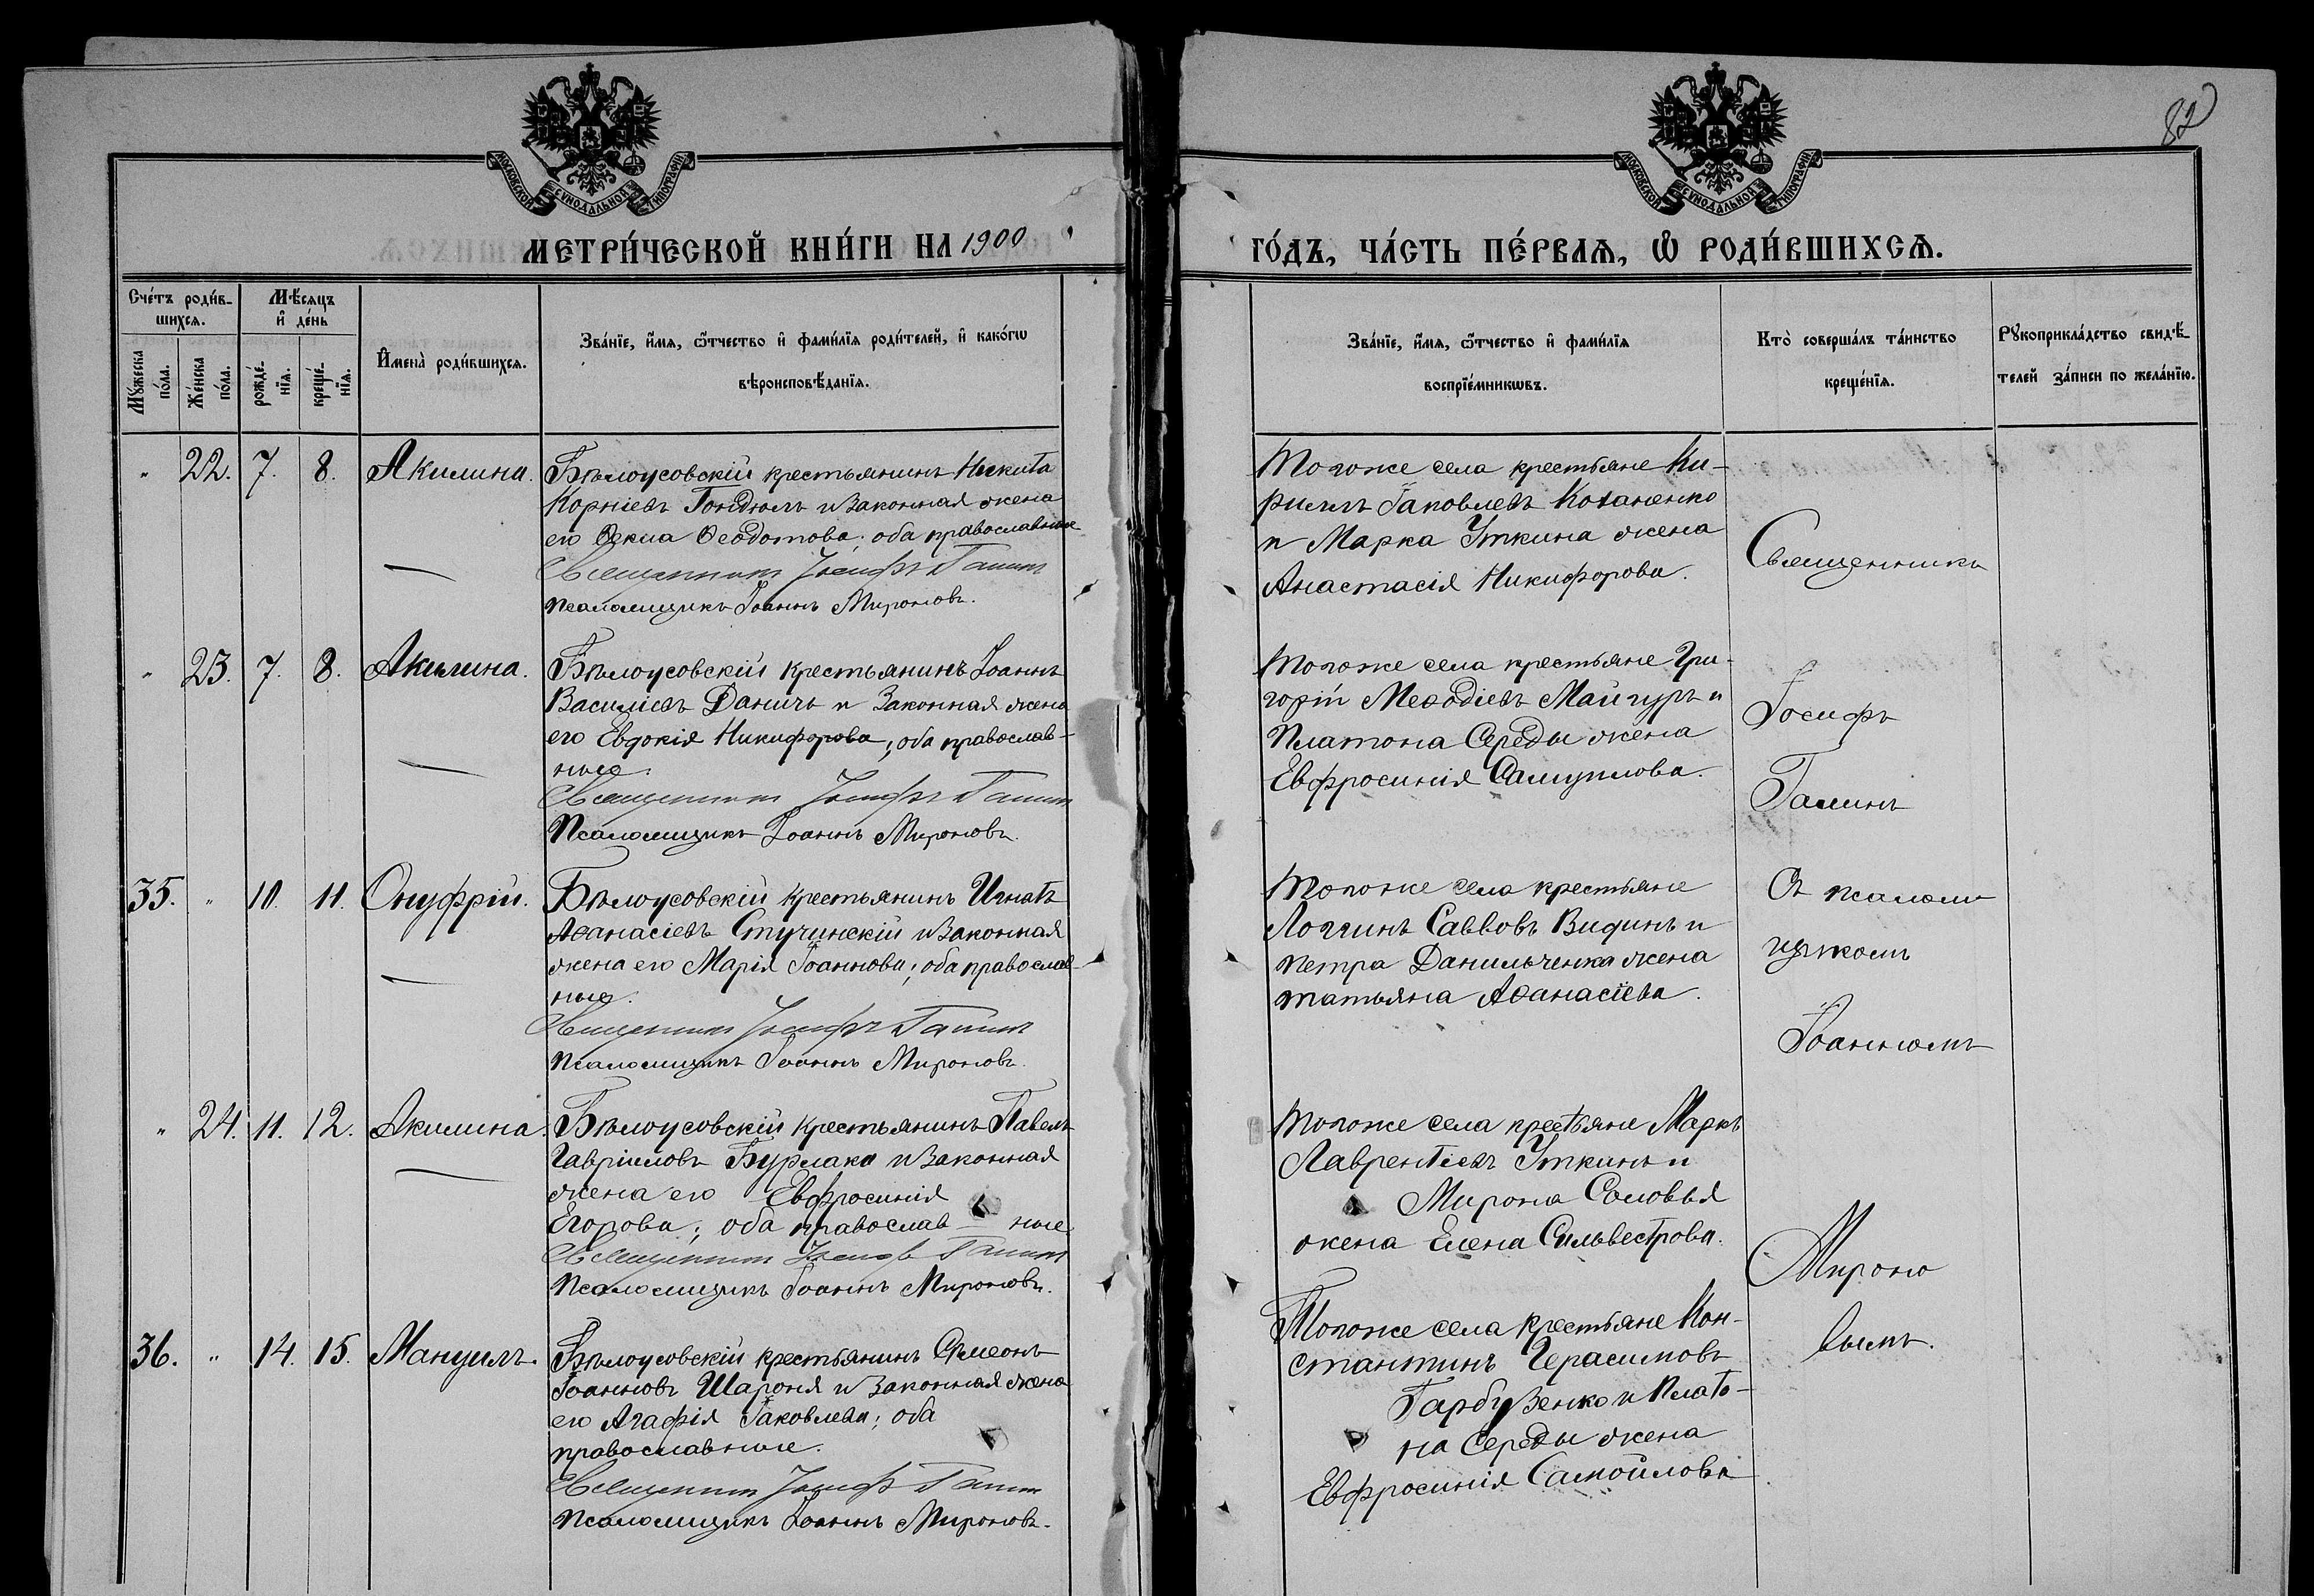 82
МОСКОВСКОЙ СУНОДАЛЬНОЙ ТИПОГРАФІИ
МОСКОВСКОЙ СУНОДАЛЬНОЙ ТИПОГРАФІИ
МЕТРИ́ЧЕСКОЙ КНИ́ГИ НА 1900
ГО́ДЪ, ЧА́СТЬ ПЕ́РВАѦ, Ѡ҆ РОДИ́ВШИХСѦ.
Сче́тъ роди́в-
шихсѧ.
Мꙋ́жеска по́ла.
Же́нска по́ла.
Мѣ́сѧцъ
и҆ де́нь
рожде́нїѧ.
креще́нїѧ.
И҆мена̀ роди́вшихсѧ.
Зва́нїе, и҆́мѧ, ѻ҆́тчество и҆ фами́лїѧ роди́телей, и҆ како́гѡ
вѣроисповѣ́данїѧ.
Зва́нїе, и҆́мѧ, ѻ҆́тчество и҆ фами́лїѧ
воспрїе́мникѡвъ.
Кто̀ соверша́лъ та́инство
креще́нїѧ.
Рꙋкоприкла́дство свидѣ́-
телей за́писи по жела́нїю.
" 22. 7. 8. Акилина.
Бѣлоусовскій крестьянинъ Никита
Корніевъ Гондюлъ и законная жена
его Ѳекла Ѳеодотова; оба православные
Священникъ Іосифъ Галинъ
Псаломщикъ Іоаннъ Мироновъ.
Тогоже села крестьяне Ки-
риллъ Іаковлевъ Коханенко
и Марка Уткина жена
Анастасія Никифорова.
" 23. 7. 8. Акилина.
Бѣлоусовскій крестьянинъ Іоаннъ
Василіевъ Даничъ и законная жена
его Евдокія Никифорова; оба православ-
ные.
Священникъ Іосифъ Галинъ
Псаломщикъ Іоаннъ Мироновъ.
Тогоже села крестьяне Гри-
горій Меѳодіевъ Майгуръ и
Платона Середы жена
Евфросинія Самуилова.
35. " 10. 11. Онуфрій.
Бѣлоусовскій крестьянинъ Игнатъ
Аѳанасіевъ Стучинскій и законная
жена его Марія Іоаннова; оба православ-
ные.
Священникъ Іосифъ Галинъ
Псаломщикъ Іоаннъ Мироновъ.
Тогоже села крестьяне
Логгинъ Саввовъ Видинъ и
Петра Данильченка жена
Татьяна Аѳанасіева.
" 24. 11. 12. Акилина.
Бѣлоусовскій крестьянинъ Павелъ
Гавріиловъ Бурлака и законная
жена его Евфросинія
Егорова; оба православ- ные.
Священникъ Іосифъ Галинъ
Псаломщикъ Іоаннъ Мироновъ.
Тогоже села крестьяне Маркъ
Лаврентіевъ Уткинъ и
Мирона Соловья
жена Елена Сильвестрова.
36. " 14. 15. Мануилъ.
Бѣлоусовскій крестьянинъ Симеонъ
Іоанновъ Шароня и законная жена
его Агафія Іаковлева; оба
православные.
Священникъ Іосифъ Галинъ
Псаломщикъ Іоаннъ Мироновъ.
Тогоже села крестьяне Кон-
стантинъ Герасимовъ
Гарбузенко и Плато-
на Середы жена
Евфросинія Самойлова.
Священникъ
Іосифъ
Галинъ
Съ псалом
щикомъ
Іоанномъ
Мироно
вымъ.